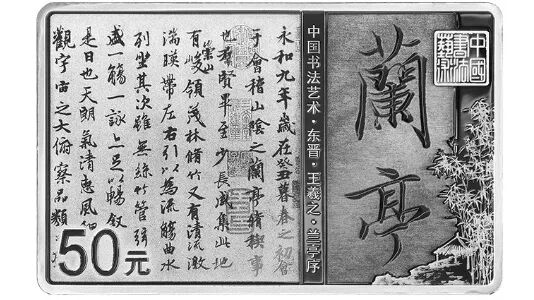 中國
書法
藝術
蘭亭
中国书法艺术·东晋·王羲之·兰亭序
永和九年歲在癸丑暮春之初會
于會稽山陰之蘭亭脩稧事
也羣賢畢至少長咸集此地
有崇山峻領茂林脩竹又有清流激
湍暎帶左右引以為流觴曲水
列坐其次雖無絲竹管弦
盛一觴一詠亦足以暢叙
是日也天朗氣清惠風
觀宇宙之大俯察品類
50元